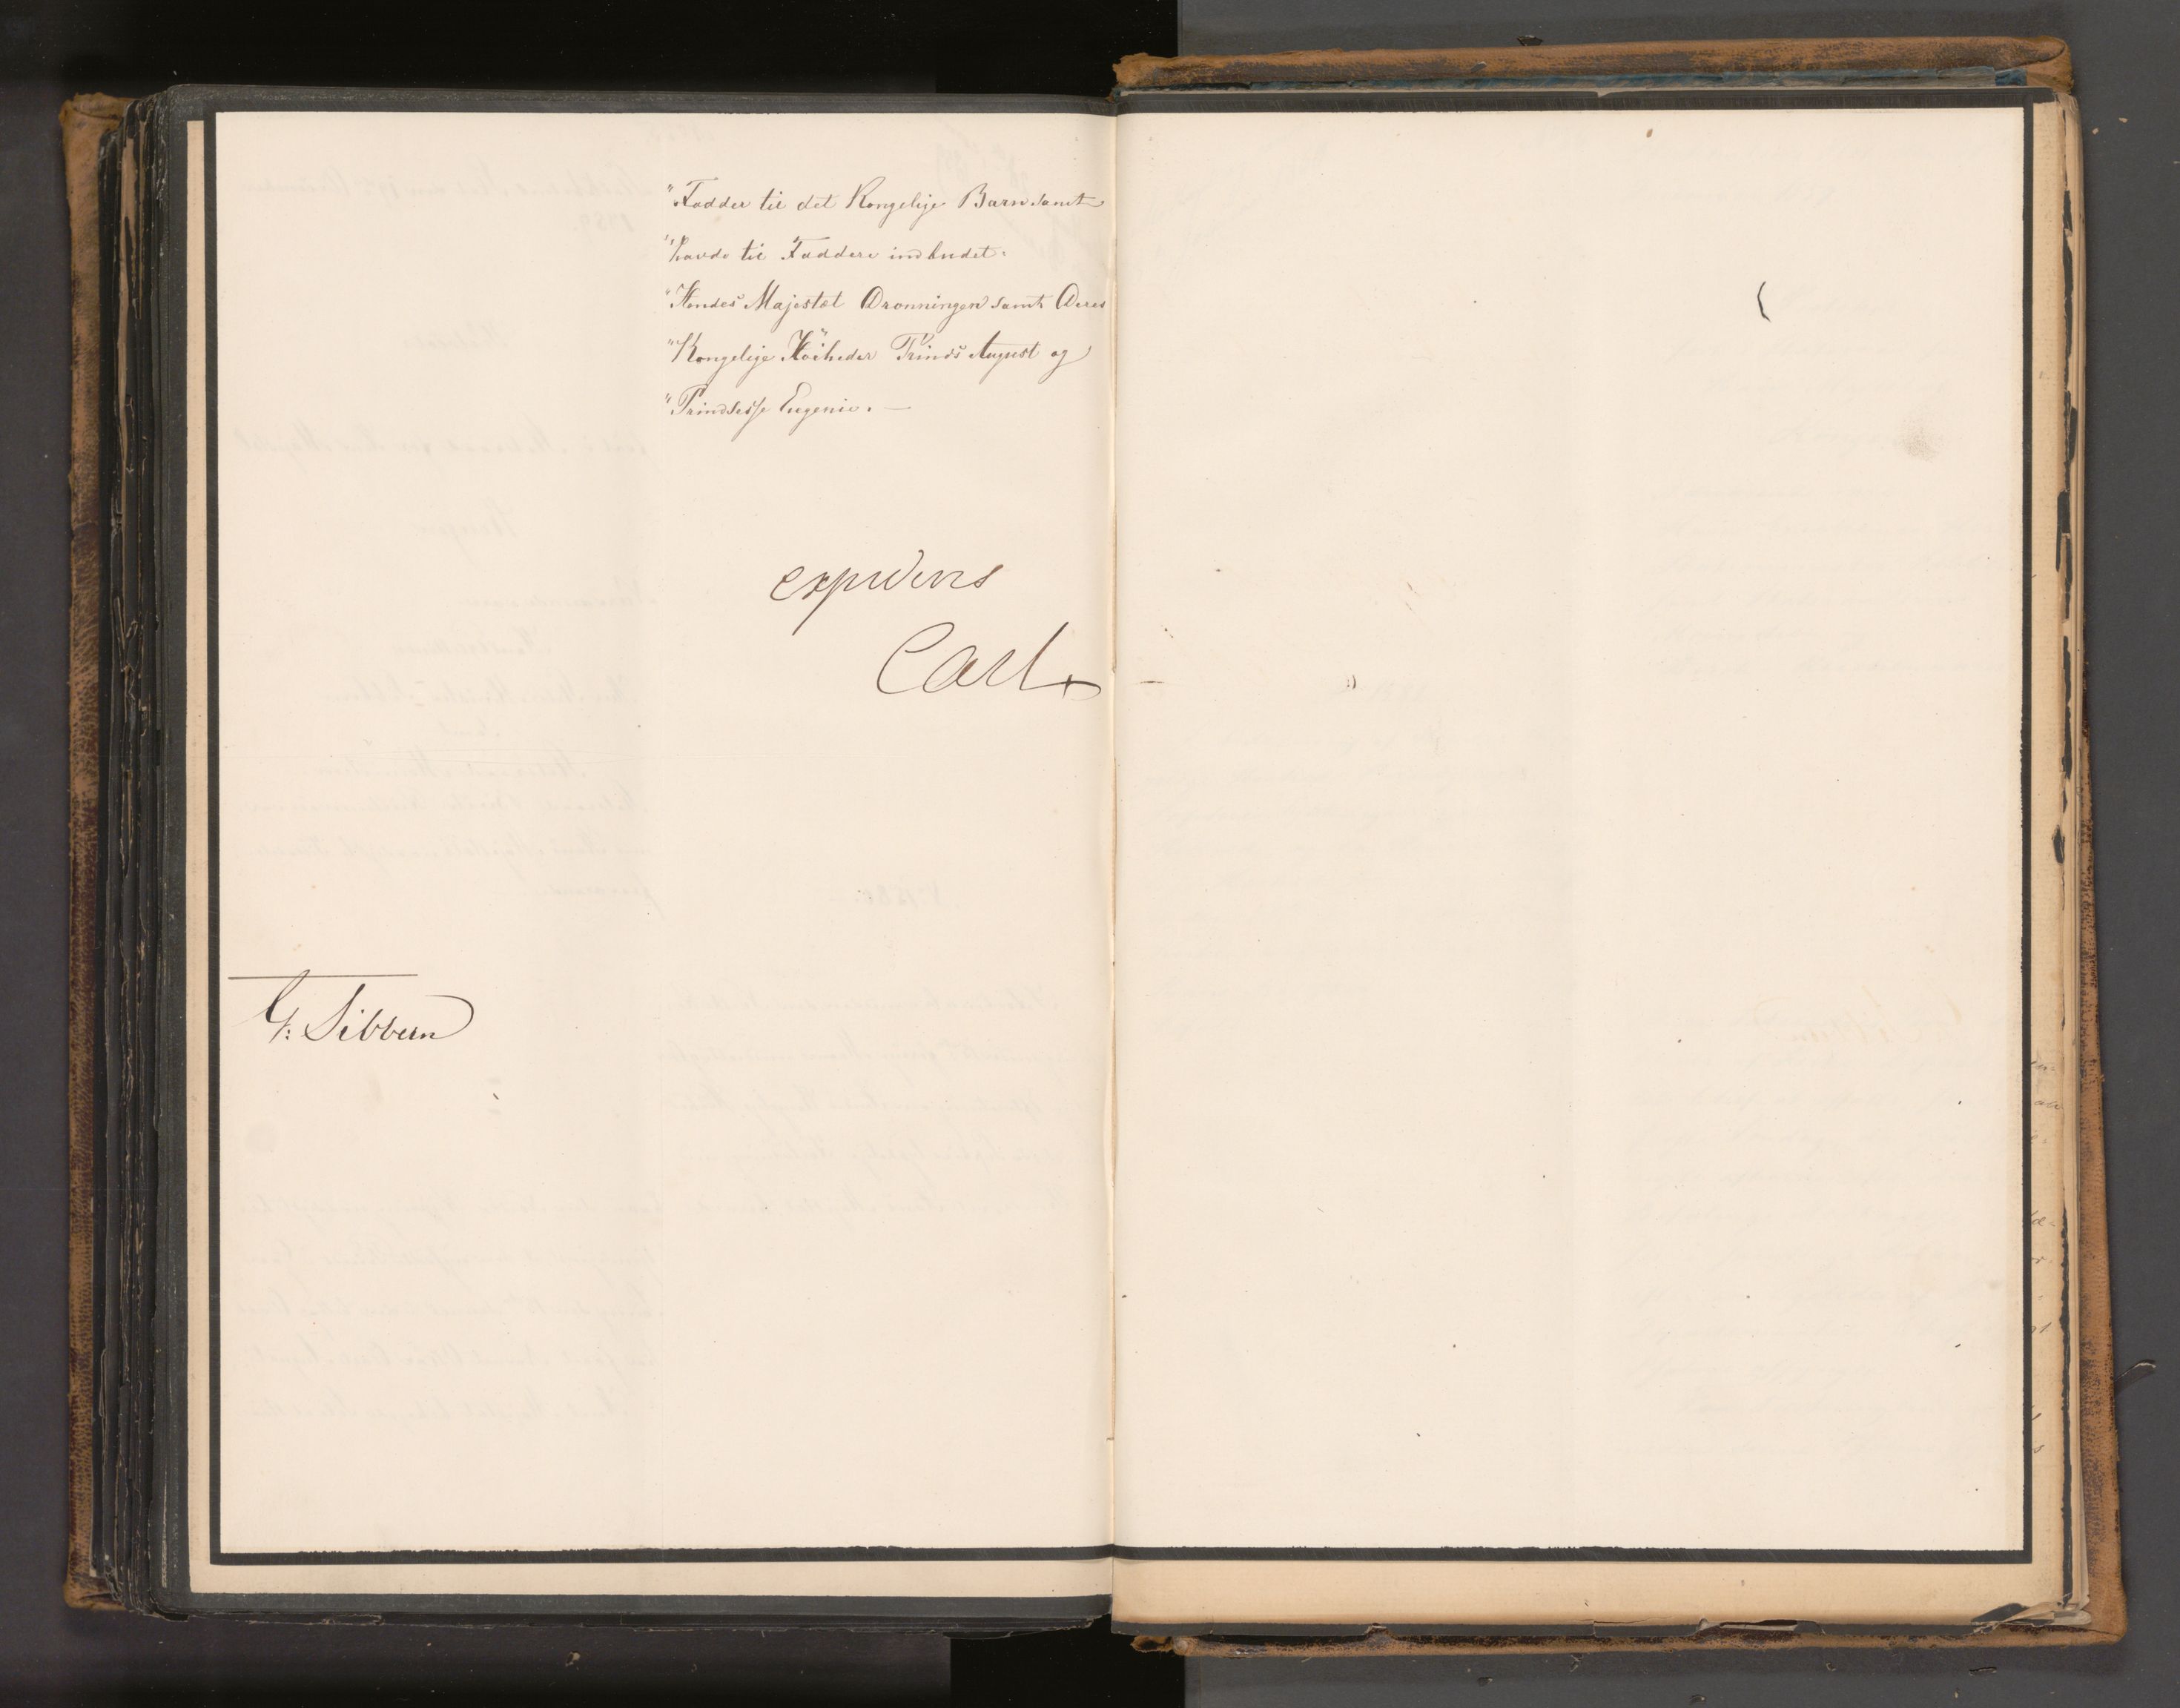 "Fadder til det Kongelige Barn samt
"havde til Faddere indbudet:
"Hendes Majestæt Dronningen samt Deres
"Kongelige Höiheder Prinds August og
"Prindsesse Eugenie. —
Carl
G: Sibbern